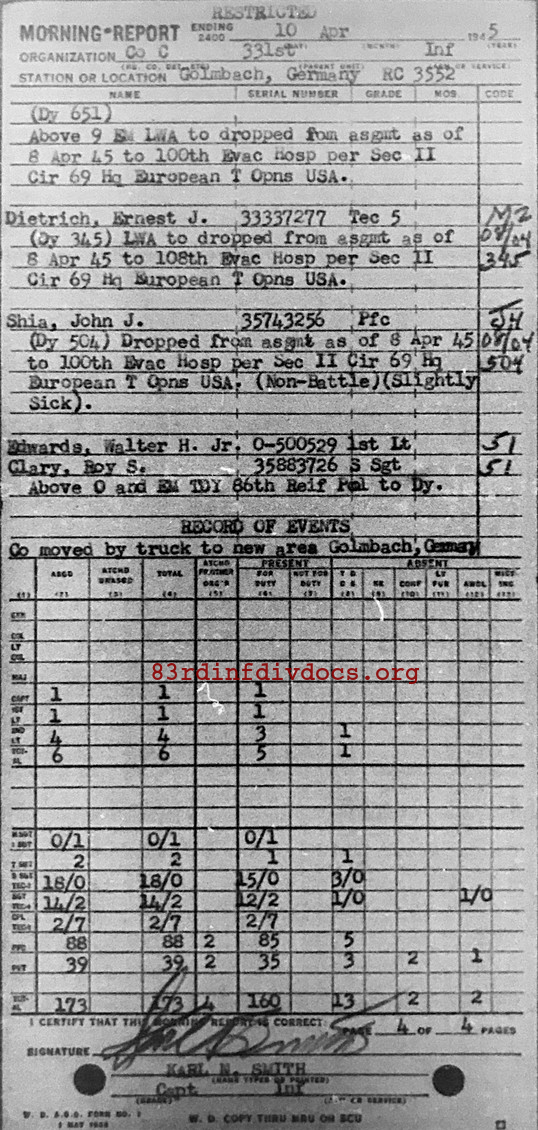 RESTRICTED
MORNING REPORT ENDING 2400 10 Apr 1945
ORGANIZATION Co C 331st Inf
STATION OR LOCATION Golmbach, Germany RC 3552
NAME SERIAL NUMBER GRADE MOS CODE
(Dy 651)
Above 9 EM LWA to dropped fom asgmt as of
8 Apr 45 to 100th Evac Hosp per Sec II
Cir 69 Hq European T Opns USA.
Dietrich, Ernest J. 33337277 Tec 5 M2
(Dy 345) LWA to dropped from asgmt as of 08/04
8 Apr 45 to 108th Evac Hosp per Sec II 345
Cir 69 Hq European T Opns USA.
Shia, John J. 35743256 Pfc J4
(Dy 504) Dropped from asgmt as of 8 Apr 45 08/04
to 100th Evac Hosp per Sec II Cir 69 Hq 504
European T Opns USA. (Non-Battle)(Slightly
Sick).
Edwards, Walter H. Jr. O-500529 1st Lt 51
Clary, Roy S. 35883726 S Sgt 51
Above O and EM TDY 86th Reif Pol to Dy.
RECORD OF EVENTS
Co moved by truck to new area Golmbach, Germany
PRESENT ABSENT
ASGD ATCHD UNASGD TOTAL ATCHD FR OTHER ORG'S FOR DUTY NOT FOR DUTY T D & S CONF LV FUR AWOL
(1) (2) (3) (4) (5) (6) (7) (8) (9) (10) (11) (12) (13)
GEN
COL
LT COL
MAJ
83rdinfdivdocs.org
CAPT 1 1 1
1ST LT 1 1 1
2ND LT 4 4 3 1
TOTAL 6 6 5 1
M SGT 1 SGT 0/1 0/1 0/1
T SGT 2 2 1 1
S SGT TEC-3 18/0 18/0 15/0 3/0
SGT TEC-4 14/2 14/2 12/2 1/0 1/0
CPL TEC-5 2/7 2/7 2/7
PFC 88 88 2 85 5
PVT 39 39 2 35 3 2 1
TOTAL 173 173 4 160 13 2 2
I CERTIFY THAT THIS MORNING REPORT IS CORRECT: PAGE 4 OF 4 PAGES
SIGNATURE
KARL N. SMITH
(NAME TYPED OR PRINTED)
Capt Inf
W. D. A.G.O. FORM NO. 1
W. D. COPY THRU MRU OR SCU